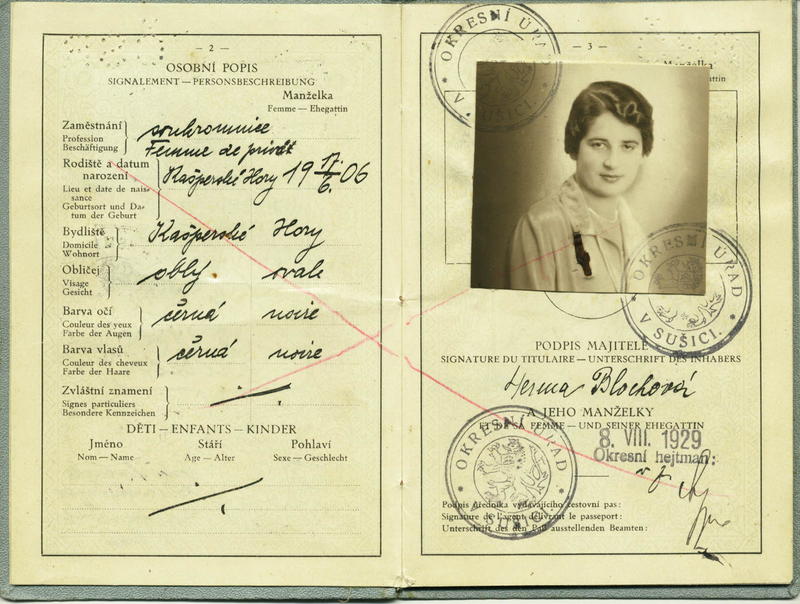 — 2 —
OSOBNÍ POPIS
SIGNALEMENT — PERSONSBESCHREIBUNG
Manželka
Femme — Ehegattin
Zaměstnání
Profession
Beschäftigung
soukromnice
Femme de privát
Rodiště a datum
narození
Lieu et date de nais-
sance
Geburtsort und Da-
tum der Geburt
Kašperské Hory 19 17/6. 06
Bydliště
Domicile
Wohnort
Kašperské Hory
Obličej
Visage
Gesicht
oblý ovale
Barva očí
Couleur des yeux
Farbe der Augen
černá noire
Barva vlasů
Couleur des cheveux
Farbe der Haare
černá noire
Zvláštní znamení
Signes particuliers
Besondere Kennzeichen
DĚTI — ENFANTS — KINDER
Jméno Stáří Pohlaví
Nom — Name Age — Alter Sexe — Geschlecht
— 3 —
OKRESNÍ ÚŘAD
V SUŠICI.
Manželka
OKRESNÍ ÚŘAD
V SUŠICI.
PODPIS MAJITELE
SIGNATURE DU TITULAIRE — UNTERSCHRIFT DES INHABERS
Herma Blochová
A JEHO MANŽELKY
ET DE SA FEMME — UND SEINER EHEGATTIN
8. VIII. 1929
Okresní hejtman:
OKRESNÍ ÚŘAD
V SUŠICI.
Podpis úředníka vydávajícího cestovní pas:
Signature de l'agent délivrant le passeport:
Unterschrift des den Paß ausstellenden Beamten: